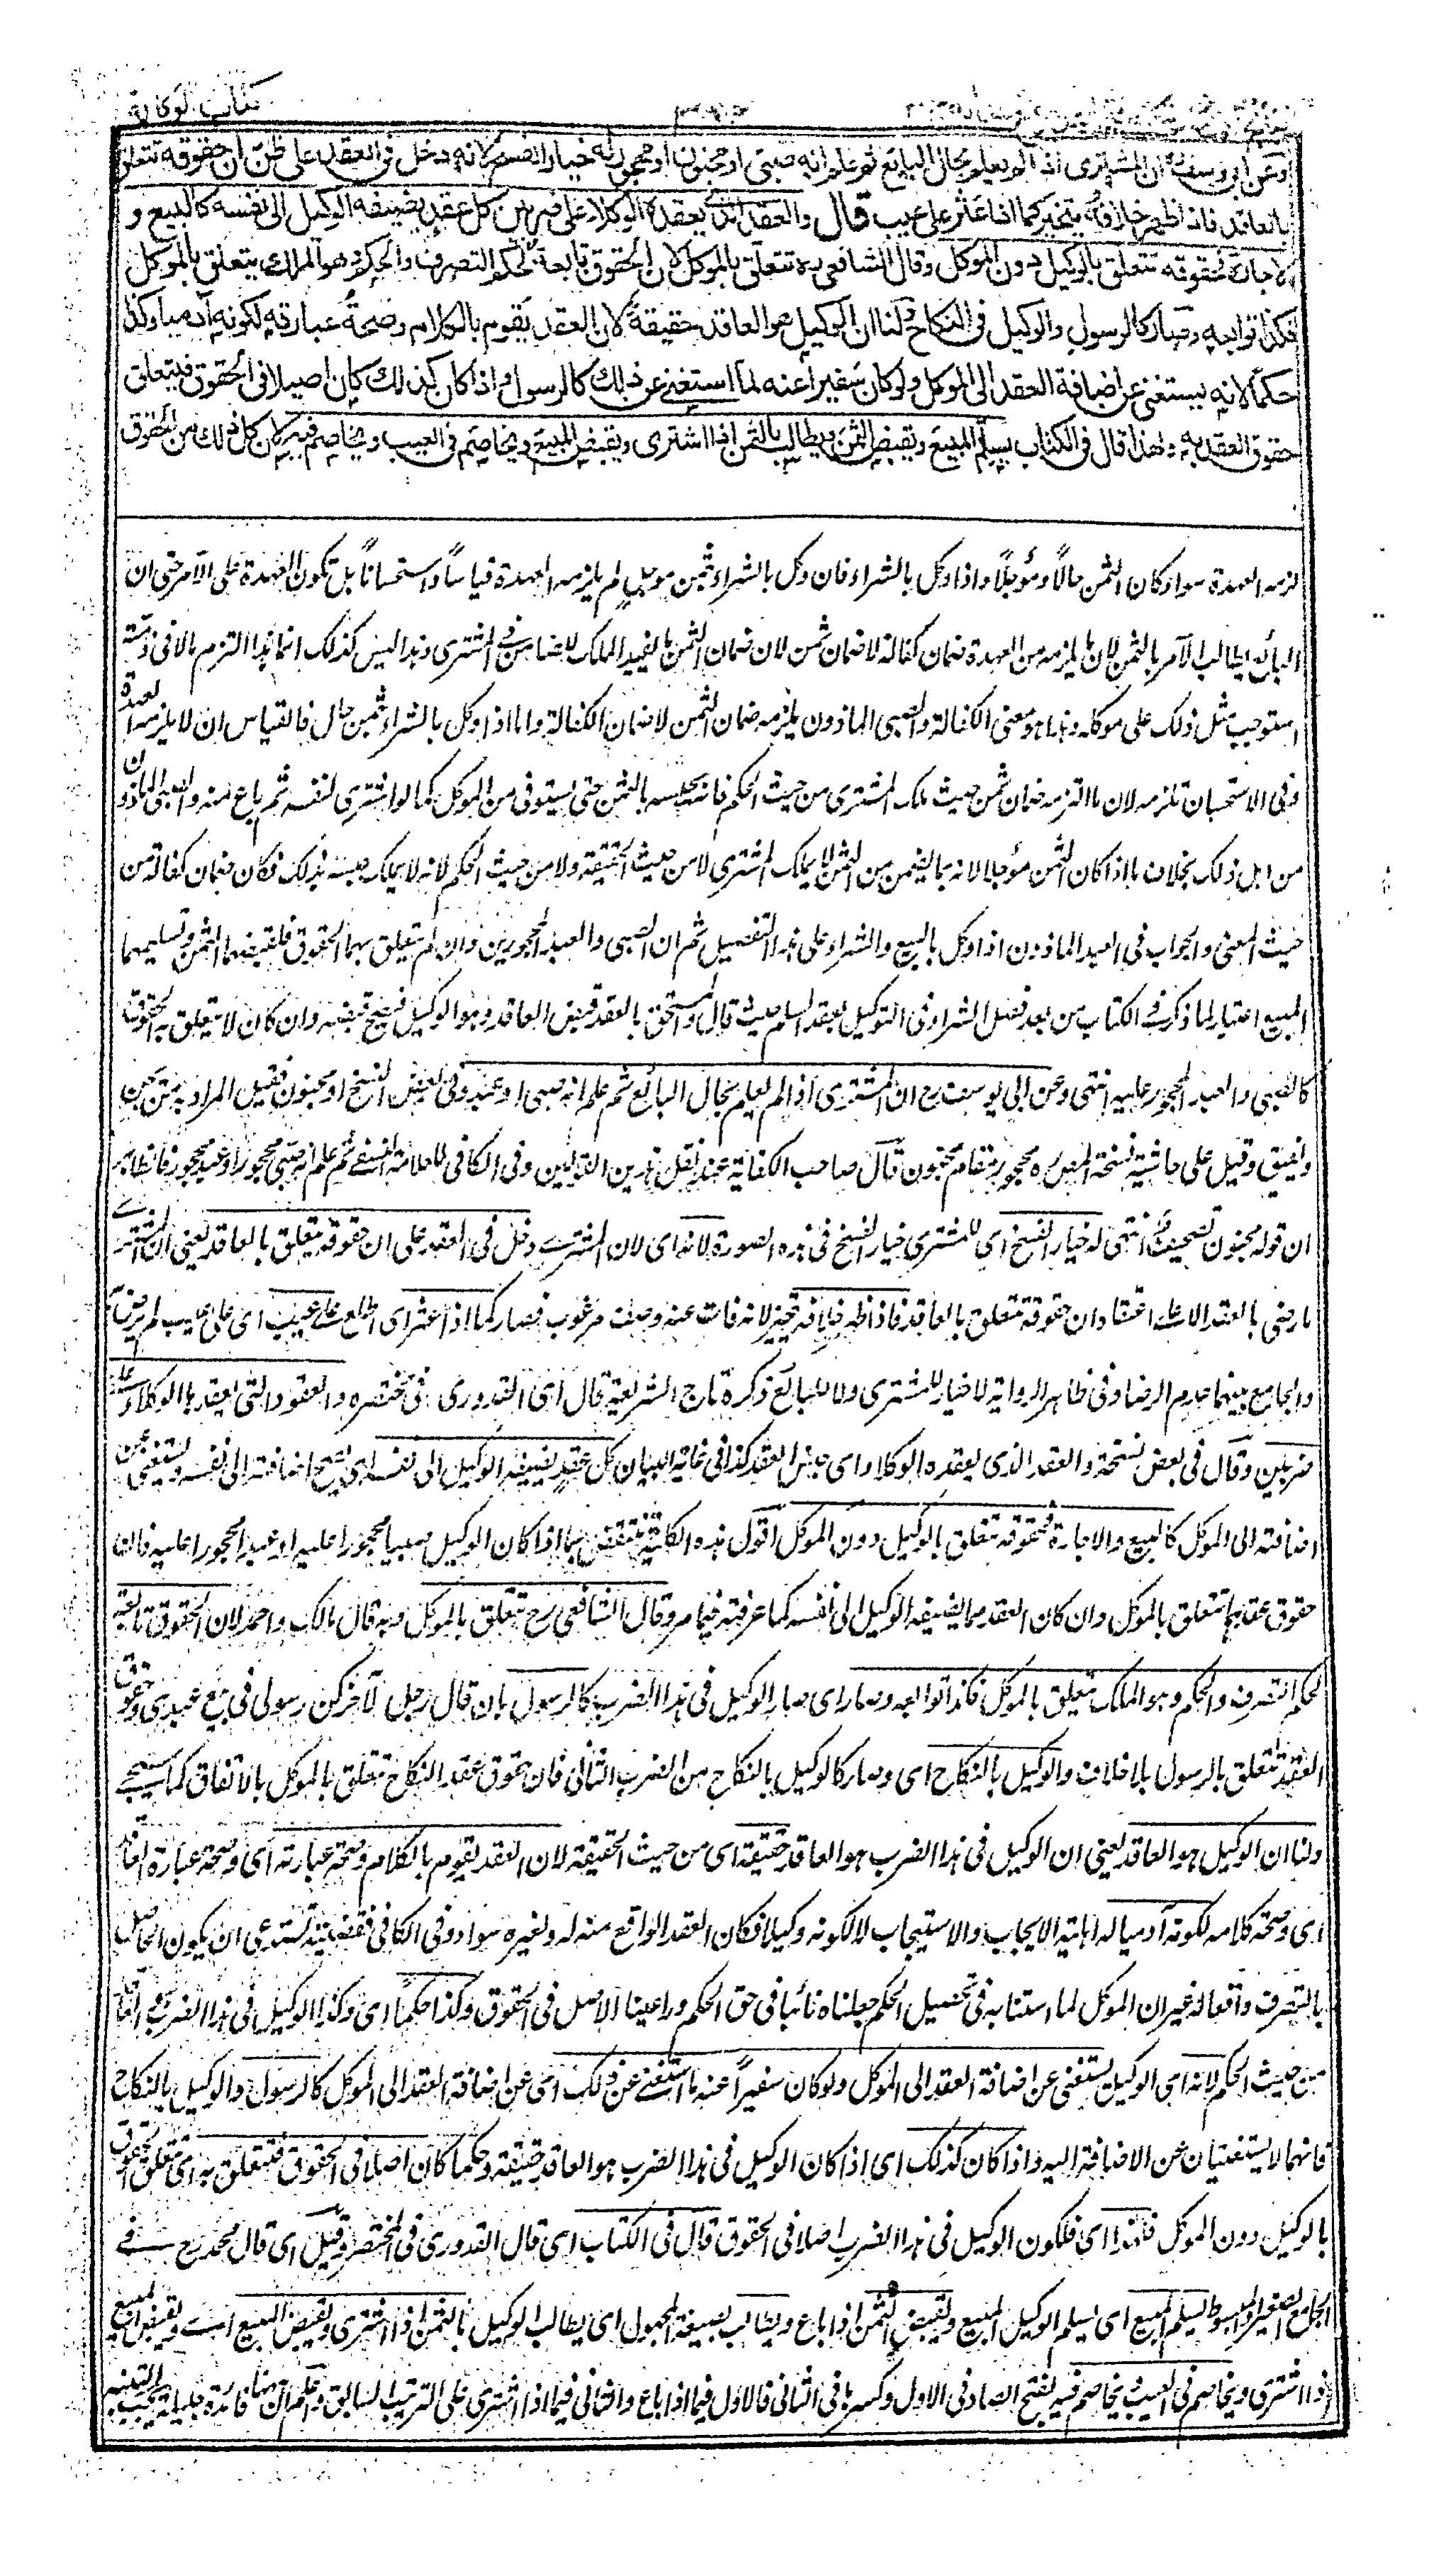 كتاب الوكالة
وعن ابي يوسف ره ان المشترى اذا لم يعلم بحال البائع ثم علم انه صبي او مجنون او محجور له خيار الفسخ لانه دخل في العقد على ظن ان حقوقه تتعلق
بالعاقد فاذا ظهر خلافه يتخير كما اذا عثر على عيب قال والعقد الذي يعقده الوكلاء على ضربين كل عقد يضيفه الوكيل الى نفسه كالبيع و
الاجارة فحقوقه تتعلق بالوكيل دون الموكل وقال الشافعي ره تتعلق بالموكل لان الحقوق تابعة لحكم التصرف والحكم وهو الملك يتعلق بالموكل
فكذا توابعه وصار كالرسول والوكيل في النكاح ولنا ان الوكيل هو العاقد حقيقة لان العقد يقوم بالكلام وصحة عبارته لكونه آدميا وكذا
حكما لانه يستغني عن اضافة العقد الى الموكل ولو كان سفيرا عنه لما استغنى عن ذلك كالرسول واذا كان كذلك كان اصيلا في الحقوق فيتعلق
حقوق العقد به ولهذا قال في الكتاب يسلم المبيع ويقبض الثمن ويطالب بالثمن اذا اشترى ويقبض المبيع ويخاصم في العيب ويخاصم فيه لان كل ذلك من الحقوق
لزمه العهدة سواء كان الثمن حالا او مؤجلا واذا وكل بالشراء فان وكل بالشراء بثمن موجل لم يلزمه العهدة قياسا واستحسانا بل تكون العهدة على الآمر حتى ان
البائع يطالب الآمر بالثمن لان ما يلزمه من العهدة ضمان كفالة لا ضمان ثمن لان ضمان الثمن ما يفيد الملك للضامن في المشترى وهذا ليس كذلك انما هذا التزم مالا في ذمته
استوجب مثل ذلك على موكله وهذا هو معنى الكفالة والصبي الماذون يلزمه ضمان الثمن لا ضمان الكفالة واما اذا وكل بالشراء بثمن حال فالقياس ان لا يلزمه العهدة
وفي الاستحسان تلزمه لان ما التزمه ضمان ثمن حيث ملك المشترى من حيث الحكم فانه يحبسه بالثمن حتى يستوفى من الموكل كما لو اشترى لنفسه ثم باع منه والصبي الماذون
من اهل ذلك بخلاف ما اذا كان الثمن مؤجلا لانه بما يضمن من الثمن لا يملك المشترى لا من حيث الحقيقة ولا من حيث الحكم لانه لا يملك حبسه بذلك فكان ضمان كفالة من
حيث المعنى والجواب في العبد الماذون اذا وكل بالبيع والشراء على هذا التفصيل ثم ان الصبي والعبد المحجورين وان لم تتعلق بهما الحقوق فلقبضهما الثمن وتسليمهما
المبيع اعتبار لما ذكر في الكتاب من بعد فصل الشراء في التوكيل بعقد السلم حيث قال والمستحق بالعقد قبض العاقد وهو الوكيل فيصح قبضه وان كان لا تتعلق به الحقوق
كالصبي والعبد المحجور عليه انتهى وعن ابي يوسف رح ان المشترى اذا لم يعلم بحال البائع ثم علم انه صبي او عبد وفي بعض النسخ او مجنون فقيل المراد به من يجن
ويفيق وقيل على حاشية نسخة المص ره محجور مقام مجنون قال صاحب الكفاية عند نقل هذين القولين وفي الكافي للعلامة النسفي ثم علم انه صبي محجور او عبد محجور فالظاهر
ان قوله مجنون تصحيف انتهى له خيار الفسخ اي للمشترى خيار الفسخ في هذه الصورة لانه اي لان المشترى دخل في العقد على ان حقوقه تتعلق بالعاقد يعني ان المشترى
ما رضي بالعقد الا على اعتقاد ان حقوقه تتعلق بالعاقد فاذا ظهر خلافه تخير لانه فات عنه وصف مرغوب فصار كما اذا عثر اى اطلع على عيب اى على عيب لم يرض به
والجامع بينهما عدم الرضا وفي ظاهر الرواية لا خيار للمشترى ولا للبائع ذكره تاج الشريعة قال اى القدوري في مختصره والعقود التي يعقدها الوكلاء على
ضربين وقال في بعض نسخته والعقد الذي يعقده الوكلاء اى جنس العقد كذا في غاية البيان كل عقد يضيفه الوكيل الى نفسه اى يصح اضافته الى نفسه ويستغنى عن
اضافته الى الموكل كالبيع والاجارة فحقوقه تتعلق بالوكيل دون الموكل اقول هذه الكلية تنتقض بما اذا كان الوكيل صبيا محجورا عليه او عبدا محجورا عليه فان
حقوق عقدهما تتعلق بالموكل وان كان العقد مما يضيفه الوكيل الى نفسه كما عرفته فيما مر وقال الشافعي رح تتعلق بالموكل وبه قال مالك واحمد لان الحقوق تابعة
لحكم التصرف والحكم وهو الملك يتعلق بالموكل فكذا توابعه وصار اى صار الوكيل في هذا الضرب كالرسول بان قال رجل لآخر كن رسولي في بيع عبدي وحقوق
العقد لا تتعلق بالرسول بلا خلاف والوكيل بالنكاح اى وصار كالوكيل بالنكاح من الضرب الثاني فان حقوق عقد النكاح تتعلق بالموكل بالاتفاق كما سيجئ
ولنا ان الوكيل هو العاقد يعني ان الوكيل في هذا الضرب هو العاقد حقيقة اى من حيث الحقيقة لان العقد يقوم بالكلام وصحة عبارته اى وصحة عبارة العاقد
اى وصحة كلامه لكونه آدميا له اهلية الايجاب والاستيجاب لا لكونه وكيلا فكان العقد الواقع منه له ولغيره سواء وفي الكافي فقضيته تستدعى ان يكون الحاصل
بالتصرف واقعا له غير ان الموكل لما استنابه في تحصيل الحكم جعلناه نائبا في حق الحكم وراعينا الاصل في الحقوق وكذا حكما اى وكذا الوكيل في هذا الضرب هو العاقد
من حيث الحكم لانه اى الوكيل يستغنى عن اضافة العقد الى الموكل ولو كان سفيرا عنه ما استغنى عن ذلك اى عن اضافة العقد الى الموكل كالرسول والوكيل بالنكاح
فانهما لا يستغنيان عن الاضافة اليه واذا كان كذلك اى اذا كان الوكيل في هذا الضرب هو العاقد حقيقة وحكما كان اصلا في الحقوق فتتعلق به اى تتعلق الحقوق
بالوكيل دون الموكل فلهذا اى فلكون الوكيل في هذا الضرب اصلا في الحقوق قال في الكتاب اى قال القدوري في المختصر وقيل اى قال محمد رح في
الجامع الصغير والمبسوط يسلم المبيع اى يسلم الوكيل المبيع ويقبض الثمن اذا باع ويطالب بصيغة المجهول اى يطالب الوكيل بالثمن اذا اشترى ويقبض المبيع اى ويقبض المبيع
اذا اشترى ويخاصم في العيب ويخاصم فيه بفتح الصاد في الاول وكسرها في الثاني فالاول فيما اذا باع والثاني فيما اذا اشترى على الترتيب السابق واعلم ان ههنا فائدة جليلة يجب التنبيه